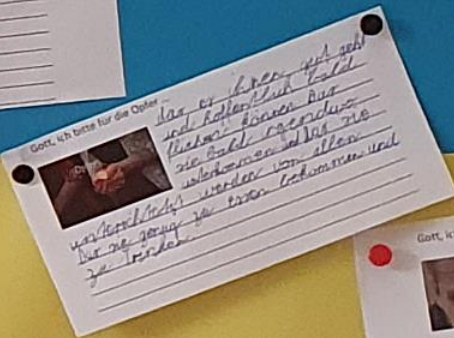 Gott, ich bitte für die Opfer ...
das es ihnen gut geht
und hoffentlich bald
flüchen können Das
sie bald irgendwo
unterkomen und das sie
unterstützt werden von allen
Das sie genug zu essen bekommen und
zu trinken
Gott, ic